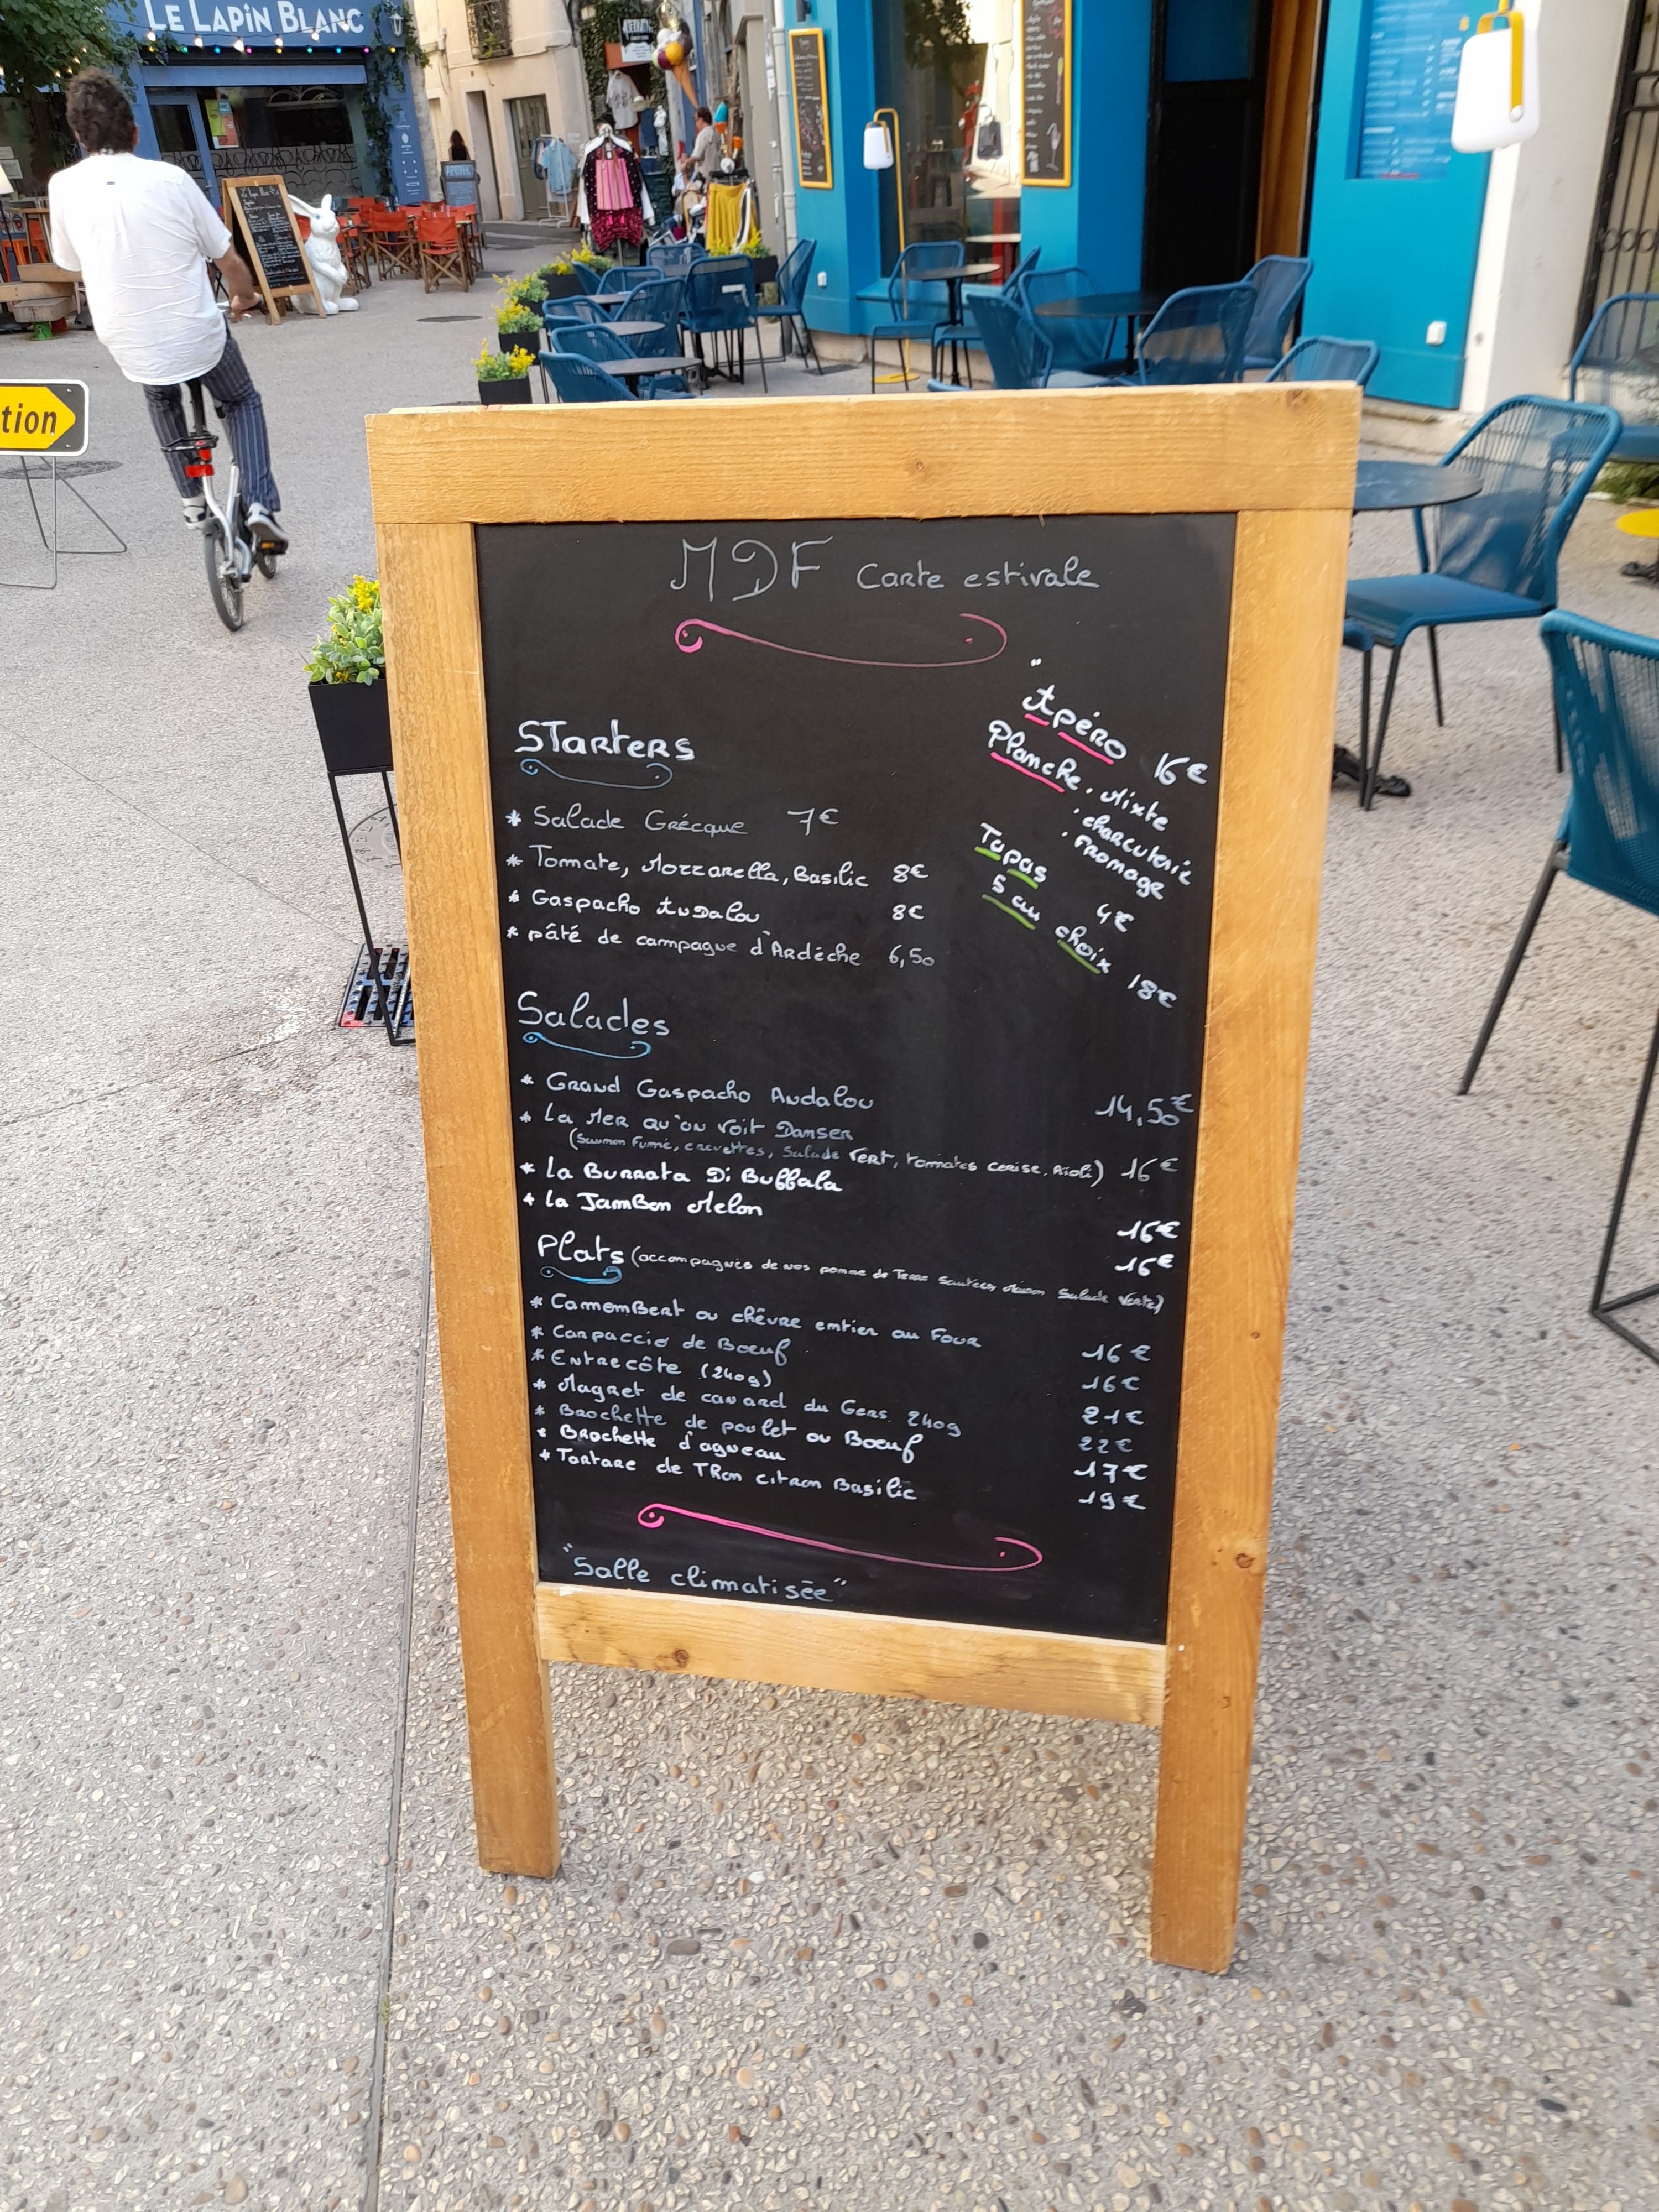 LE LAPIN BLANC
tion
MDF Carte estivale
"Apéro 16€
Planche. Mixte
. charcuterie
. Fromage
Tapas 4€
5 au choix 18€
STarters
* Salade Grécque 7€
* Tomate, Mozzarella, Basilic 8€
* Gaspacho Andalou 8€
* pâté de campagne d'Ardèche 6,50
Salades
* Grand Gaspacho Andalou 14,50€
* La Mer qu'on Voit Danser
(Saumon Fumé, crevettes, Salade Vert, tomates cerise. Aïoli) 16€
* la Burrata Di Buffala 16€
* la JamBon Melon 16€
Plats (accompagnés de nos pomme de Terre Sautées, Maison Salade Verte)
* CamemBert ou chêvre entier au Four 16€
* Carpaccio de Bœuf 16€
* Entrecôte (240g) 21€
* Magret de canard du Gers 240g 22€
* Brochette de poulet ou Bœuf 17€
* Brochette d'agneau 19€
* Tartare de Thon citron Basilic
"Salle climatisée"